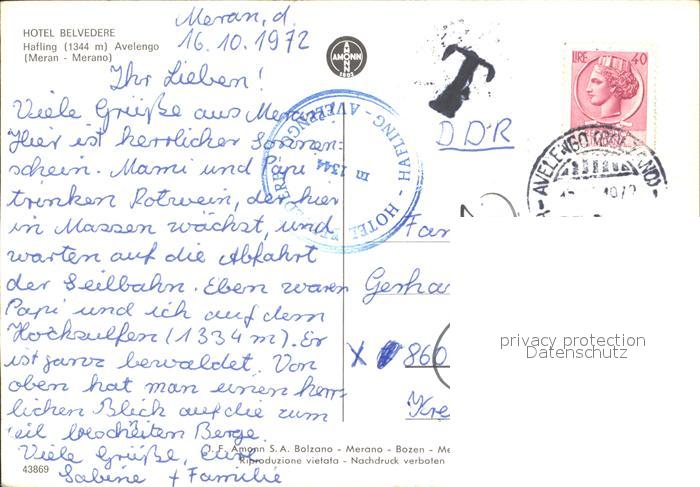 HOTEL BELVEDERE
Hafling (1344 m) Avelengo
(Meran - Merano)
AMONN
Meran, d.
16.10.1972
Ihr Lieben!
Viele Grüße aus Meran
Hier ist herrlicher Sonnen-
schein. Mami und Papi
trinken Rotwein, der hier
in Massen wächst, und
warten auf die Abfahrt
der Seilbahn. Eben waren
Papi und ich auf dem
(1334 m). Er
ist ganz bewaldet. Von
oben hat man einen herr-
lichen Blick auf die zum
Teil beschneiten Berge.
Viele Grüße, Eure
Sabine + Familie
T
DDR
LIRE 40
AVELENGO
HAFLING - AVELENGO
m 1344
HOTEL BELVEDERE
Fam
Gerha
X 860
Kre
privacy protection
Datenschutz
F. Amonn S.A. Bolzano - Merano - Bozen - Me
Riproduzione vietata - Nachdruck verboten
43869